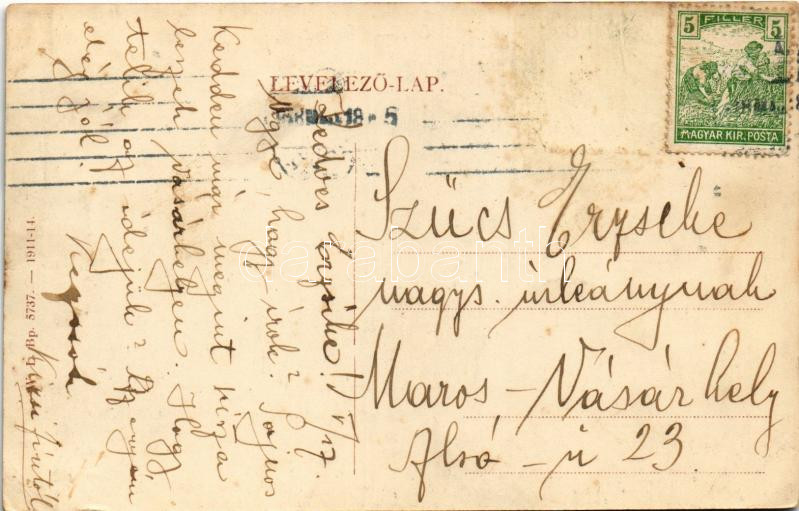 LEVELEZŐ-LAP.
5 FILLER 5
MAGYAR KIR. POSTA
Szücs Erzsike
nagys. urleánynak
Maros-Vásárhely
Alsó-u 23
Kedves Erzsike! V/17.
Ugye, hogy írok? Sajnos
Kedden már megint
leszek Vásárhelyen. Hogy
telik az idejük? Az enyém
elég jól!
5737. — 1911-14.
darabanth